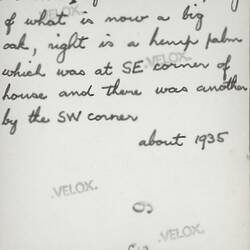 of what is now a big
oak, right is a hemp palm
which was at SE corner of
house and there was another
by the SW corner
about 1935
VELOX
VELOX
VELOX
VELOX